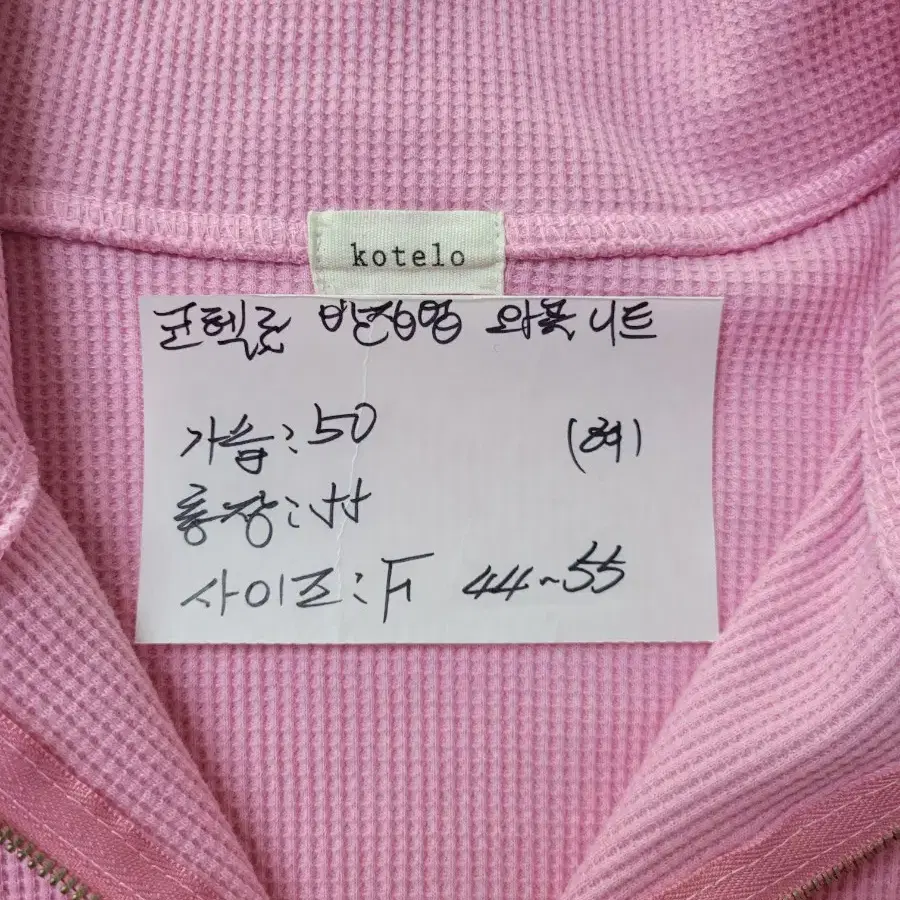 kotelo
코텔로 반집업 와플 니트
가슴: 50
총장: 55
사이즈: F 44~55